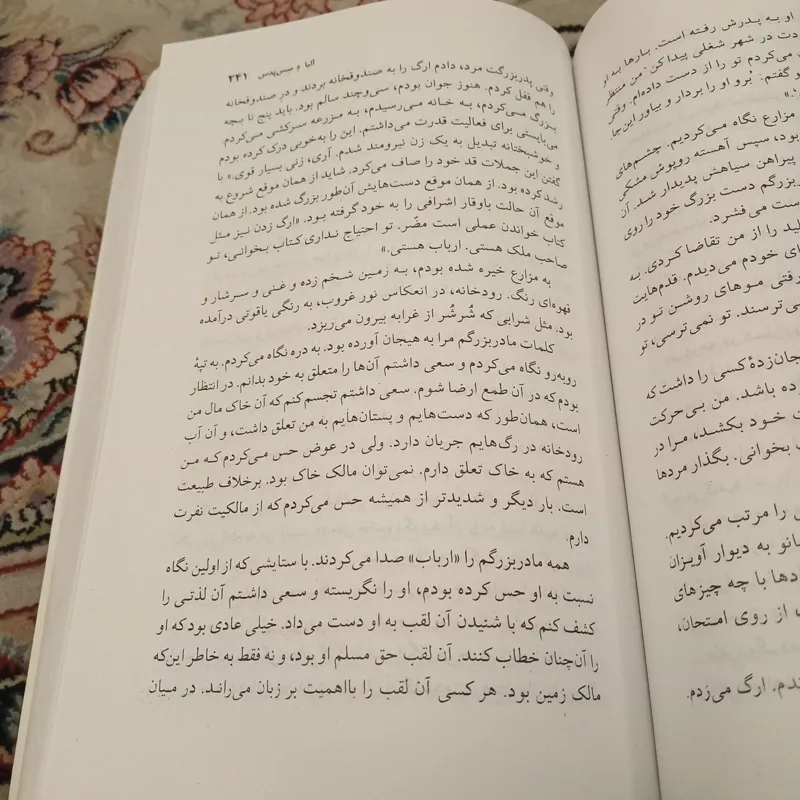 او به پدرش رفته است. بارها به او
دت در شهر شغلی پیدا کن. من منتظر
می‌کردم تو را از دست داده‌ام. وقتی
گفتم: بُرو او را بردار و بیاور این‌جا
مزارع نگاه می‌کردیم. چشم‌های
بود، سپس آهسته روپوش مشکی
پیراهن سیاهش پدیدار شد. آن
بزرگم دست بزرگ خود را روی
ست می‌فشرد.
لید را از من تقاضا کردی. به
ای خودم می‌دیدم. قدم‌هایت
رفتی موهای روشن تو در
ی‌ترسند. تو نمی‌ترسی، تو
جان‌زدهٔ کسی را داشت که
ده باشد. من بی‌حرکت
ت خود بکشد، مرا در
بخوانی. بگذار مردها
را مرتب می‌کردیم.
انو به دیوار آویزان
دها با چه چیزهای
، از روی امتحان،
ندم. ارگ می‌زدم.
البا و سس‌پدس ۲۴۱
وقتی پدربزرگت مرد، دادم ارگ را به صندوقخانه بردند و در صندوقخانه
را هم قفل کردم. هنوز جوان بودم، سی‌وچند سالم بود. باید پنج تا بچه
بزرگ می‌کردم، به خانه می‌رسیدم، به مزرعه سرکشی می‌کردم.
می‌بایستی برای فعالیت قدرت می‌داشتم. این را به‌خوبی درک کرده بودم
و خوشبختانه تبدیل به یک زن نیرومند شدم. آری، زنی بسیار قوی.» با
گفتن این جملات قد خود را صاف می‌کرد. شاید از همان موقع شروع به
رشد کرده بود. از همان موقع دست‌هایش آن‌طور بزرگ شده بود. از همان
موقع آن حالت باوقار اشرافی را به خود گرفته بود. «ارگ زدن نیز مثل
کتاب خواندن عملی است مضّر. تو احتیاج نداری کتاب بخوانی، تو
صاحب ملک هستی. ارباب هستی.»
به مزارع خیره شده بودم، به زمین شخم زده و غنی و سرشار و
قهوه‌ای رنگ. رودخانه، در انعکاس نور غروب، به رنگی یاقوتی درآمده
بود. مثل شرابی که شُرشُر از غرابه بیرون می‌ریزد.
کلمات مادربزرگم مرا به هیجان آورده بود. به دره نگاه می‌کردم. به تپهٔ
روبه‌رو نگاه می‌کردم و سعی داشتم آن‌ها را متعلق به خود بدانم. در انتظار
بودم که در آن طمع ارضا شوم. سعی داشتم تجسم کنم که آن خاک مال من
است، همان‌طور که دست‌هایم و پستان‌هایم به من تعلق داشت، و آن آب
رودخانه در رگ‌هایم جریان دارد. ولی در عوض حس می‌کردم که من
هستم که به خاک تعلق دارم. نمی‌توان مالک خاک بود. برخلاف طبیعت
است. بار دیگر و شدیدتر از همیشه حس می‌کردم که از مالکیت نفرت
دارم.
همه مادربزرگم را «ارباب» صدا می‌کردند. با ستایشی که از اولین نگاه
نسبت به او حس کرده بودم، او را نگریسته و سعی داشتم آن لذتی را
کشف کنم که با شنیدن آن لقب به او دست می‌داد. خیلی عادی بود که او
را آن‌چنان خطاب کنند. آن لقب حق مسلم او بود، و نه فقط به خاطر این‌که
مالک زمین بود. هر کسی آن لقب را بااهمیت بر زبان می‌راند. در میان